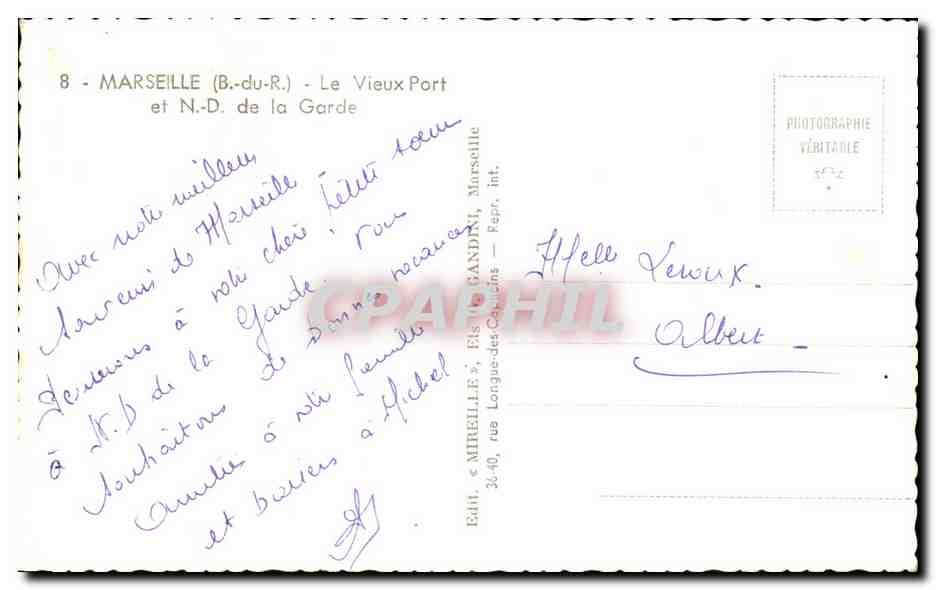 8 - MARSEILLE (B.-du-R.) - Le Vieux Port
et N.-D. de la Garde
Avec notre meilleur
souvenir de Marseille -
pensons à notre chère petite sœur
à N.D de la Garde. Vous
souhaitons de bonnes vacances
Amitiés à votre famille
et baisers à Michel
Edit. « MIREILLE », Ets GANDINI, Marseille
36-40, rue Longue-des-Capucins — Repr. int.
PHOTOGRAPHIE
VÉRITABLE
Melle Leroux
Albert -
CPAPHIL